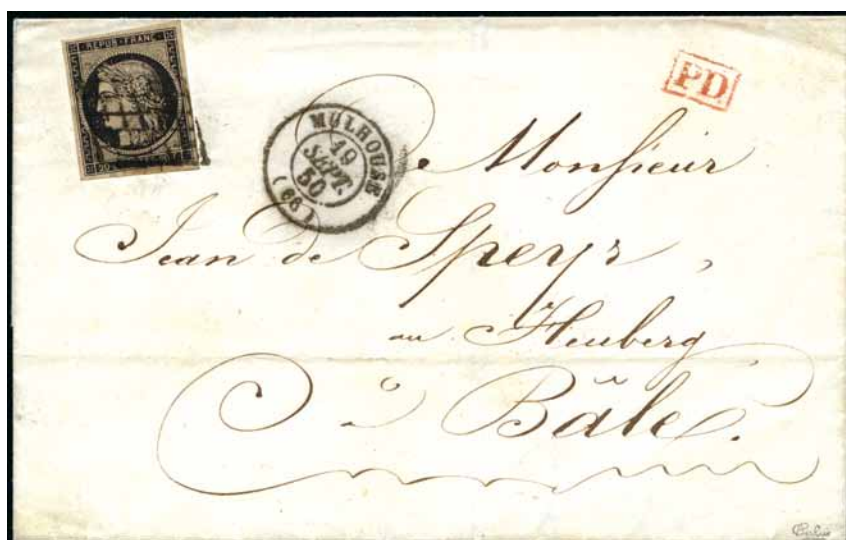 REPUB·FRANC
20
PD
MULHOUSE
19
SEPT.
50
(66)
Monsieur
Jean de Speyr,
au Heuberg
à Bâle.